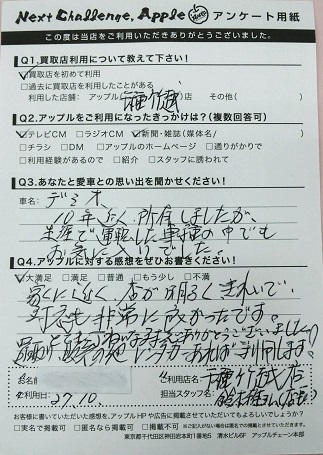 Next Challenge, Apple アンケート用紙
この度は当店をご利用いただきありがとうございました。
Q1.買取店利用について教えて下さい!
買取店を初めて利用
□過去に買取店を利用したことがある
利用した店舗: アップル 店 その他( )
Q2.アップルをご利用になったきっかけは?(複数回答可)
テレビCM □ラジオCM 新聞・雑誌(媒体名/ )
□チラシ □DM □アップルのホームページ □通りがかりで
□利用経験があるので □紹介 □スタッフに誘われて
Q3.あなたと愛車との思い出を聞かせください!
車名: デミオ
10年近く所有しましたが、
車種の中でも
お気に入りでした。
Q4.アップルに対する感想をぜひお書きください!
大満足 □満足 □普通 □もう少し □不満
家に近く、店が明るくきれいで、
対応も非常に良かったです。
ありがとうございました
あればまた利用します。
ご利用日 27.10.
ご利用店名
担当スタッフ名
お客様に書いていただいた感想を、アップルHPや広告に掲載させていただいてもよろしいでしょうか?
□実名で掲載可 □匿名なら掲載可 □掲載不可
東京都千代田区神田岩本町1番地5 清水ビル6F アップルチェーン本部